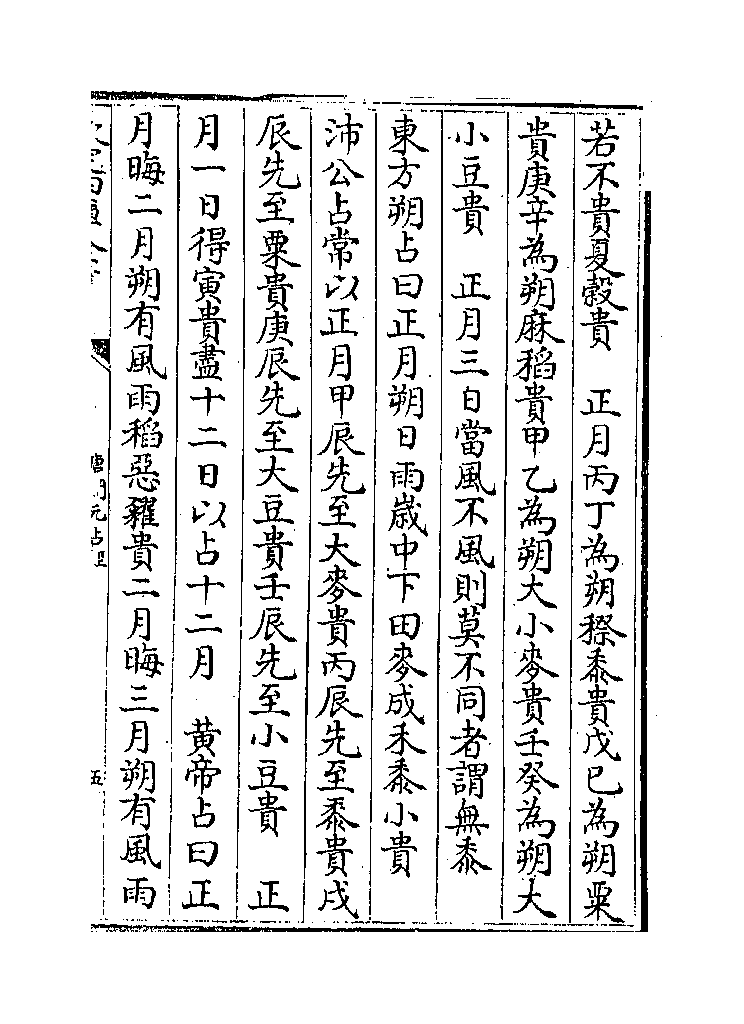 若不貴夏穀貴　正月丙丁為朔穄黍貴戊巳為朔粟
貴庚辛為朔麻稻貴甲乙為朔大小麥貴壬癸為朔大
小豆貴　正月三日當風不風則莫不同者謂無黍
東方朔占曰正月朔日雨歲中下田麥成禾黍小貴
沛公占常以正月甲辰先至大麥貴丙辰先至黍貴戌
辰先至粟貴庚辰先至大豆貴壬辰先至小豆貴　正
月一日得寅貴盡十二日以占十二月　黃帝占曰正
月晦二月朔有風雨稻惡糴貴二月晦三月朔有風雨
唐開元占經
五